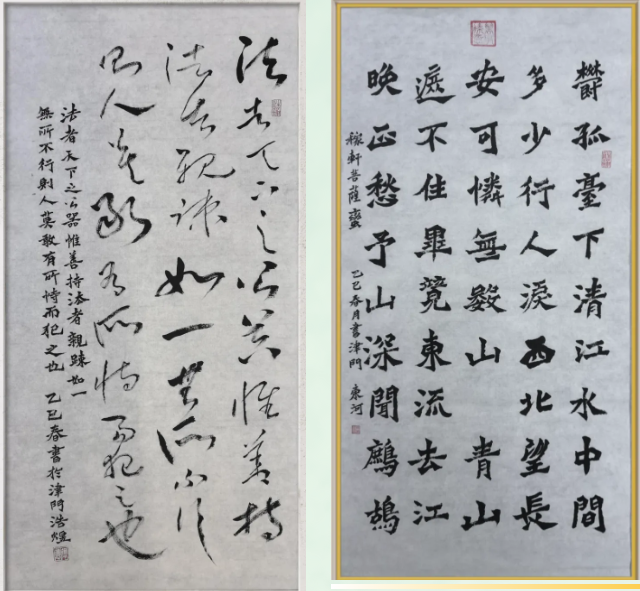 欝孤臺下清江水中間
多少行人淚西北望長
安可憐無數山青山
遮不住畢竟東流去江
晚正愁予山深聞鷓鴣
稼軒菩薩蠻 乙巳春月書津門 東河
法者天下之公器惟善持
法者親疎如一無所不行
則人莫敢有所恃而犯之也
法者天下之公器惟善持法者親踈如一
無所不行則人莫敢有所恃而犯之也 乙巳春書於津門浩